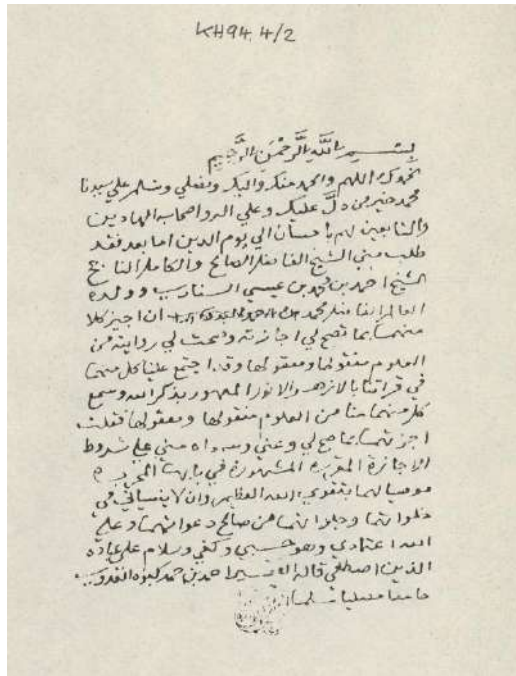 KH94.4/2
بسم الله الرحمن الرحيم
نحمدك اللهم والحمد منك واليك ونصلي ونسلم على سيدنا
محمد خير من دل عليك وعلى اله واصحابه الهادين
والتابعين لهم باحسان الى يوم الدين اما بعد فقد
طلب مني الشيخ الفاضل الصالح والكامل الناجح
الشيخ احمد بن محمد بن عيسي السنارى وولده
العالم الفاضل محمد ان اجيز كلا
منهما بما تصح لي اجازته وثبتت لي روايته من
العلوم منقولها ومعقولها وقد اجتمع علينا كل منهما
في قراتنا بالازهر والانور المعمور بذكر الله وسمع
كل منهما منا من العلوم منقولها ومعقولها فقلت
اجزتهما بما صح لي وعني ورواه مني على شروط
الاجازة المقررة المشهورة في بابها المحررة
موصيا لهما بتقوى الله العظيم وان لا ينسياني في
خلواتهما وجلواتهما من صالح دعواتهما وعلى
الله اعتمادي وهو حسبي وكفى وسلام على عباده
الذين اصطفى قاله الفقير احمد بن محمد
حامدا مصليا مسلما